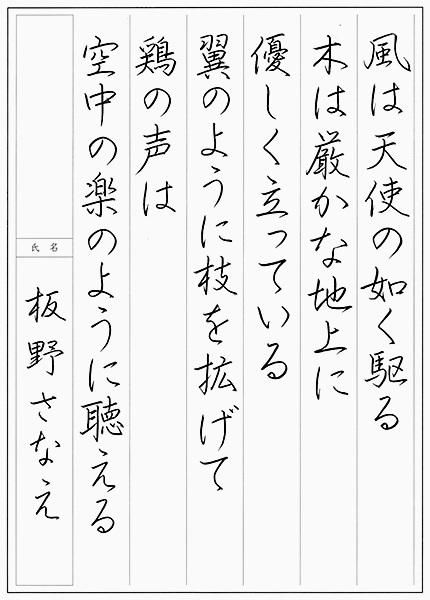 風は天使の如く駆る
木は厳かな地上に
優しく立っている
翼のように枝を拡げて
鶏の声は
空中の楽のように聴える
氏名
板野さなえ